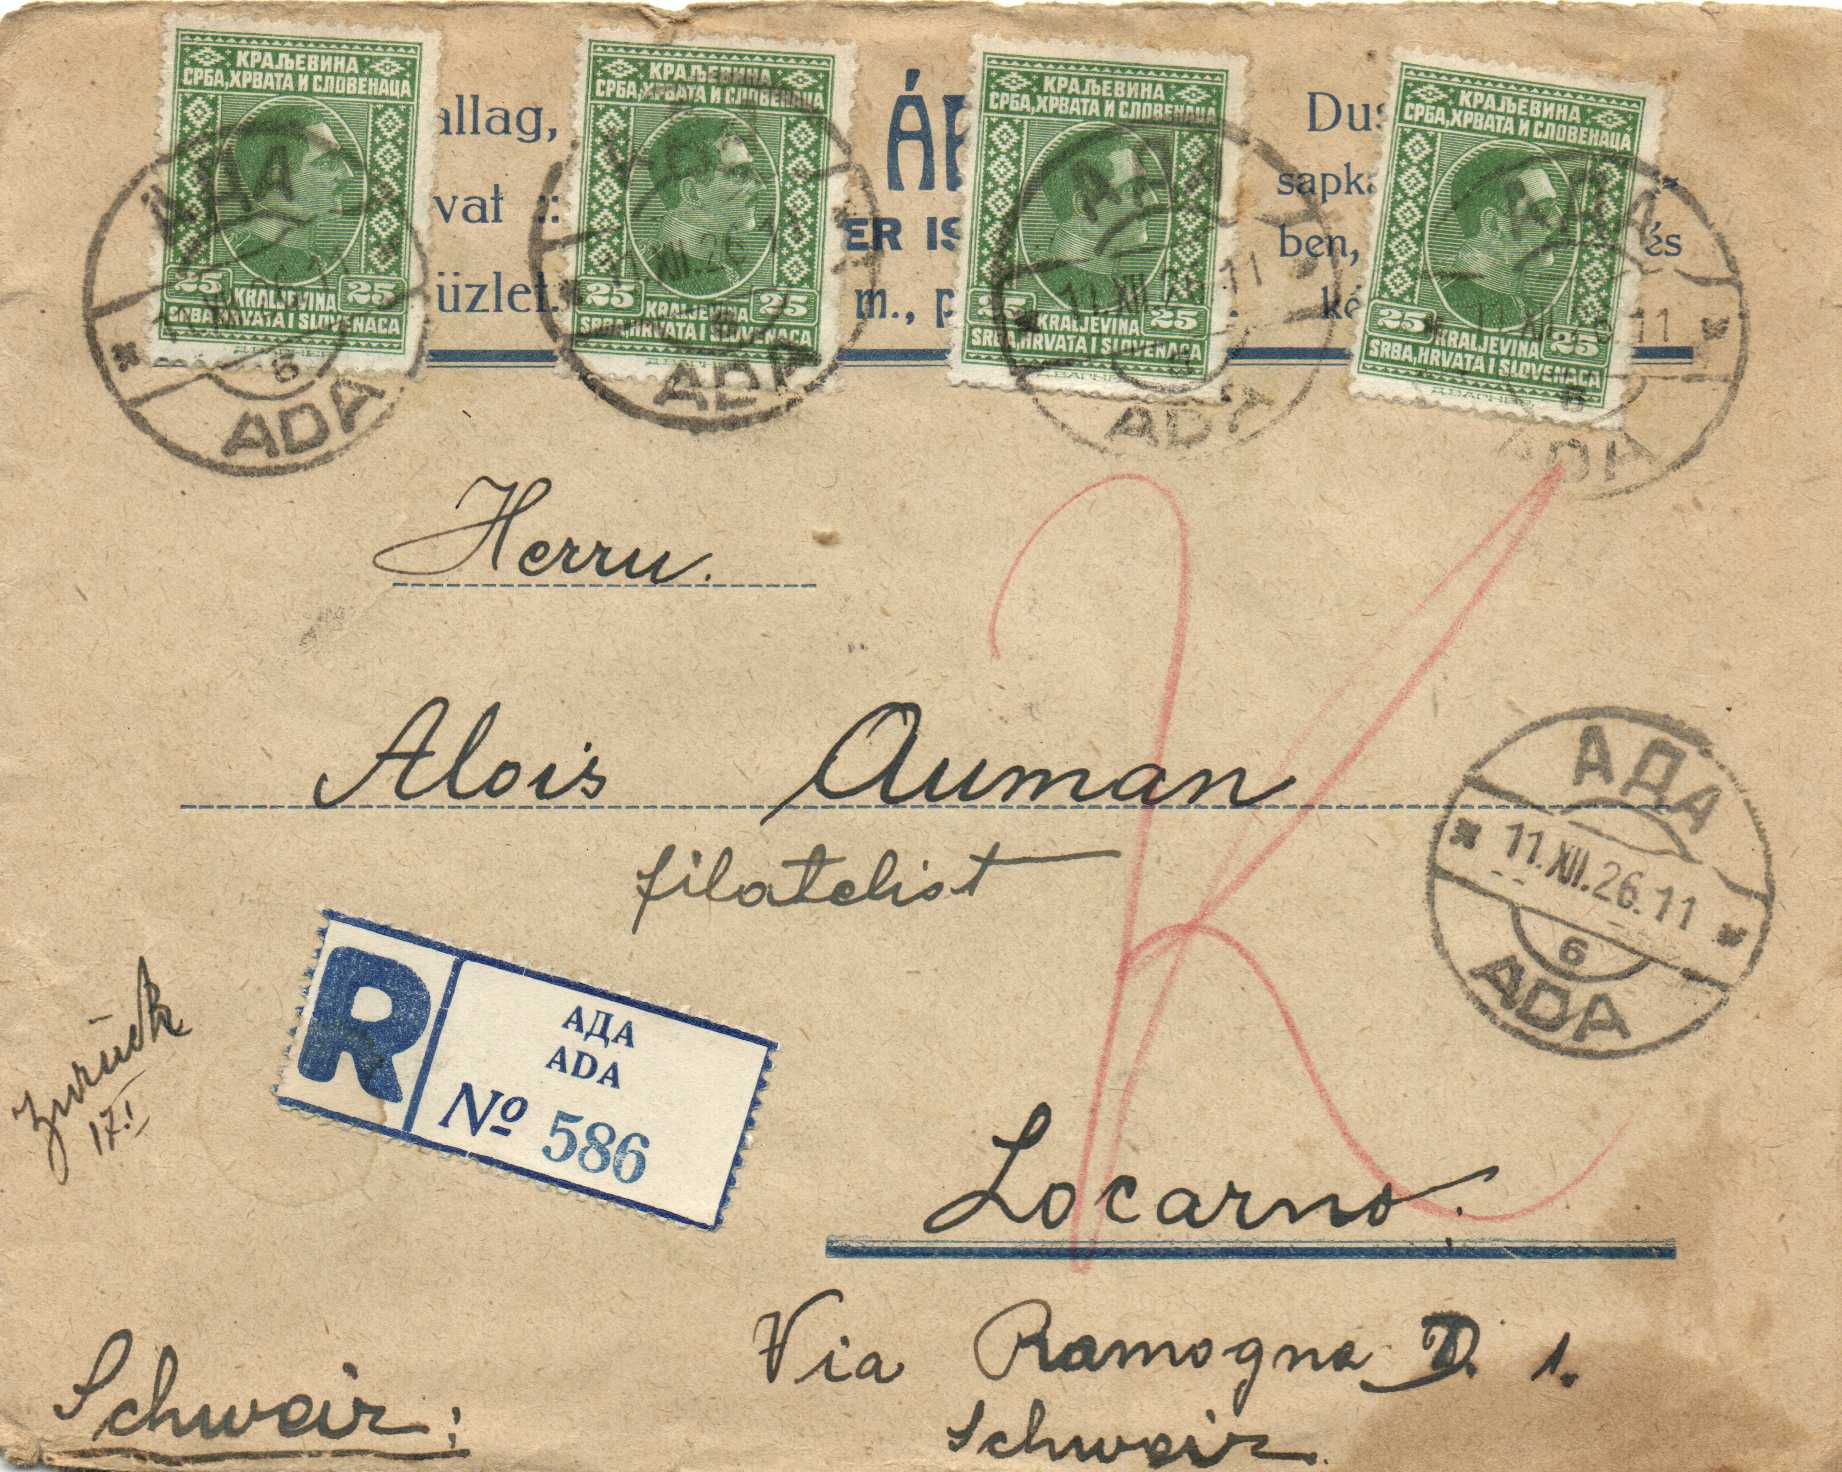 КРАЉЕВИНА
СРБА, ХРВАТА И СЛОВЕНАЦА
25 KRALJEVINA 25
SRBA, HRVATA I SLOVENACA
КРАЉЕВИНА
СРБА, ХРВАТА И СЛОВЕНАЦА
25 KRALJEVINA 25
SRBA, HRVATA I SLOVENACA
КРАЉЕВИНА
СРБА, ХРВАТА И СЛОВЕНАЦА
25 KRALJEVINA 25
SRBA, HRVATA I SLOVENACA
КРАЉЕВИНА
СРБА, ХРВАТА И СЛОВЕНАЦА
25 KRALJEVINA 25
SRBA, HRVATA I SLOVENACA
allag,
vat ::
üzlet.
ÁR
ER IS
m., p
Dus
sapka
ben, és
ké
АДА
11.XII.26.11
6
ADA
АДА
11.XII.26.11
ADA
АДА
11.XII.26.11
ADA
АДА
11.XII.26.11
6
ADA
Herrn.
Alois Auman
filatelist
K
АДА
11.XII.26.11
6
ADA
R
АДА
ADA
No 586
Zurück
17.I
Locarno.
Via Ramogna D. 1.
Schweiz.
Schweiz: